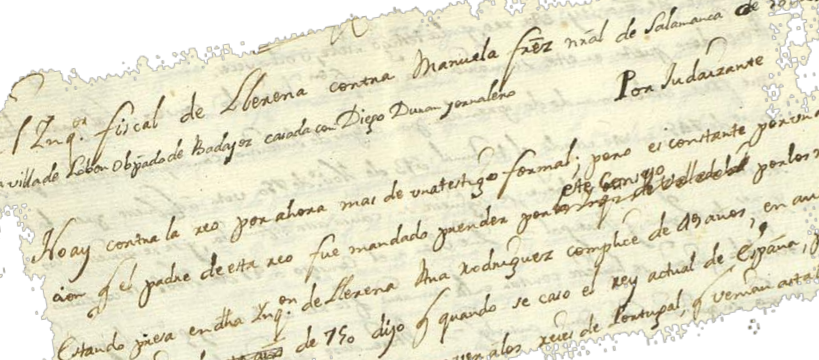 Inq.or fiscal de Llerena contra Manuela frez nral de Salamanca
villa de Lobon obpado de Badajoz casada con Diego Duran jornalero
Por Judaizante
No ay contra la reo por ahora mas de un a testigo formal; pero es constante por
este Consejo
cion q el padre de esta reo fue mandado prender por por los
Estando presa en dha Inq.on de Llerena Ana Rodriguez complice de 49 años, en
de 750 dijo q quando se caso el rey actual de España,
a los reies de Portugal, q venian